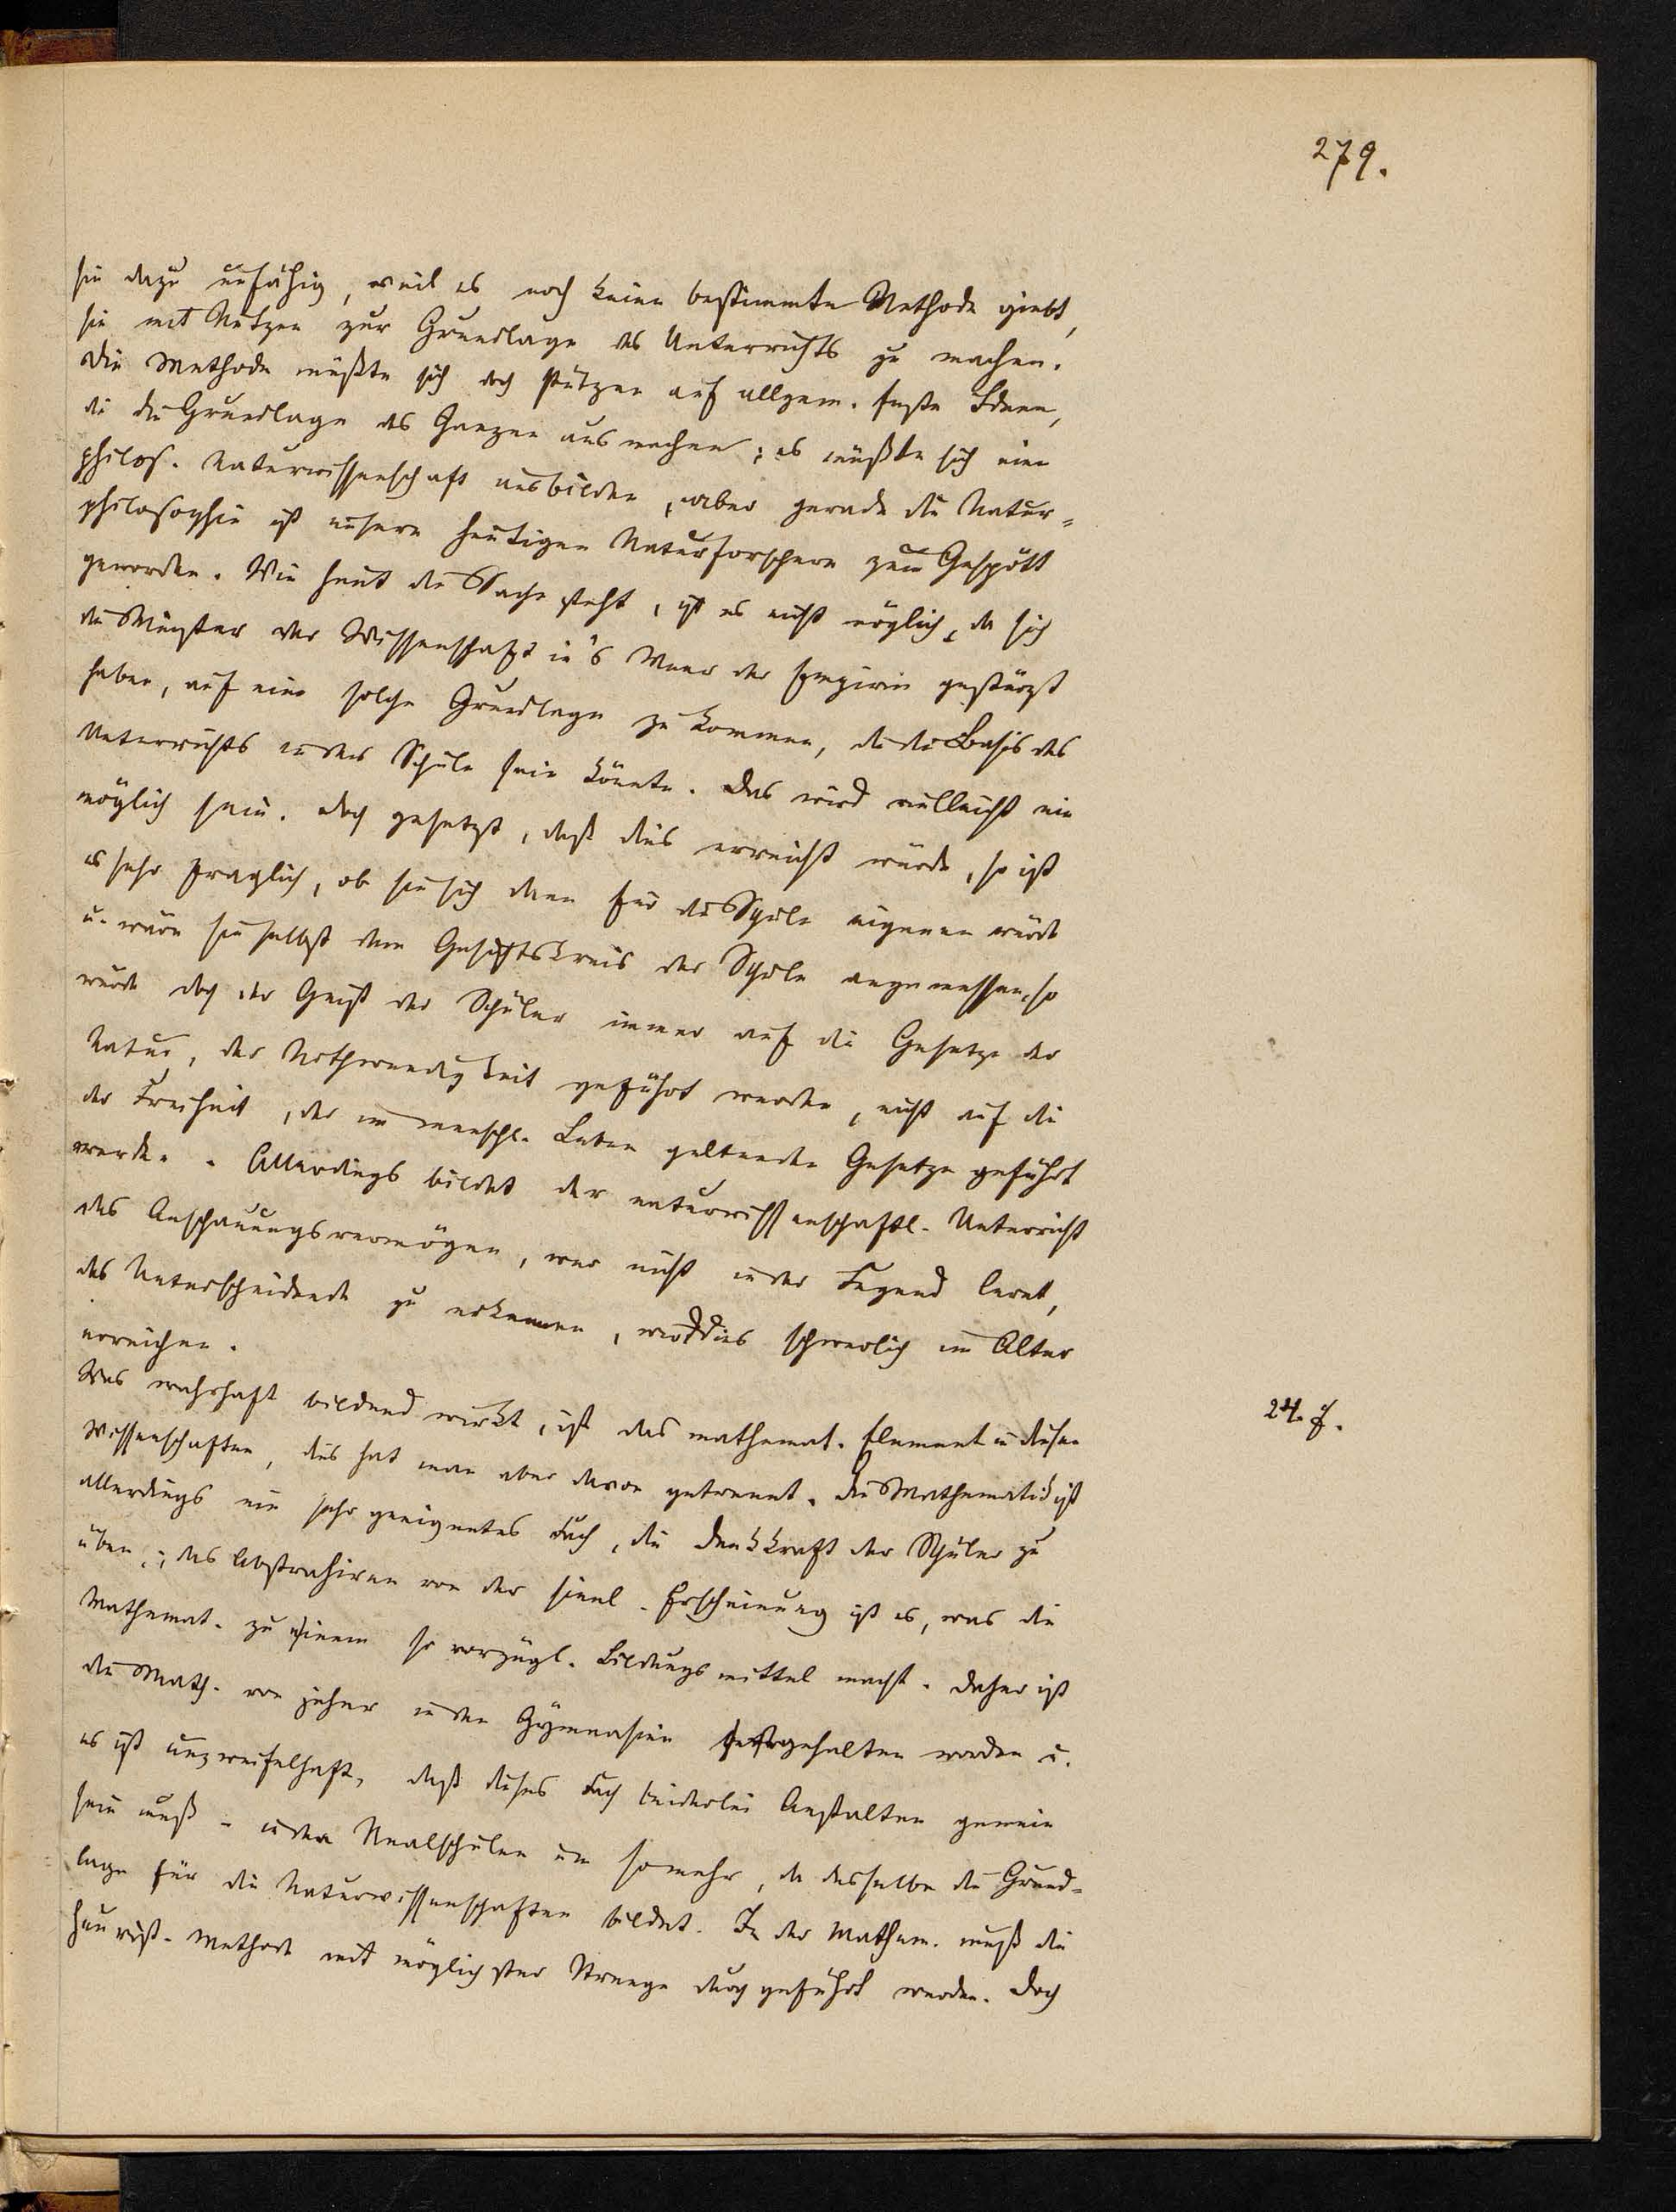 279.
sie dazu unfähig, weil es noch keine bestimmte Methode giebt,
sie mit Nutzen zur Grundlage des Unterrichts zu machen.
Die Methode müßte sich doch stützen auf allgem. feste Ideen,
die die Grundlage des Ganzen ausmachen; es müßte sich eine
philos. Naturwissenschaft ausbilden, aber gerade die Natur-
philosophie ist unsern heutigen Naturforschern zum Gespött
geworden. Wie heut die Sache steht, ist es nicht möglich, da sich
die Meister der Wissenschaft in's Meer der Empirie gestürzt
haben, auf eine solche Grundlage zu kommen, die die Basis des
Unterrichts in der Schule sein könnte. Das wird vielleicht nie
möglich sein. Doch gesetzt, daß dies erreicht würde, so ist
es sehr fraglich, ob sie sich dann für die Schule eignen würde
u. wäre sie selbst dem Gesichtskreis der Schule angemessen, so
würde doch der Geist der Schüler immer auf die Gesetze der
Natur, der Nothwendigkeit geführt werden, nicht auf die
der Freiheit, der im menschl. Leben geltenden Gesetze geführt
werden. Allerdings bildet der naturwissenschaftl. Unterricht
das Anschauungsvermögen, wer nicht in der Jugend lernt,
das Unterscheidende zu erkennen, wird dies schwerlich im Alter
erreichen.
Was wahrhaft bildend wirkt, ist das mathemat. Element in diesen
24. J.
Wissenschaften, dies hat man aber davon getrennt. Die Mathematik ist
allerdings ein sehr geeignetes Fach, die Denkkraft der Schüler zu
üben; das Abstrahiren von der sinnl. Erscheinung ist es, was die
Mathemat. zu einem so vorzügl. Bildungsmittel macht. Daher ist
die Math. von jeher in den Gymnasien festgehalten worden u.
es ist unzweifelhaft, daß dieses Fach beiderlei Anstalten gemein
sein muß - in den Realschulen um somehr, da dasselbe die Grund-
lage für die Naturwissenschaften bildet. In der Mathem. muß die
heurist. Methode mit möglichster Strenge durchgeführt werden. Doch